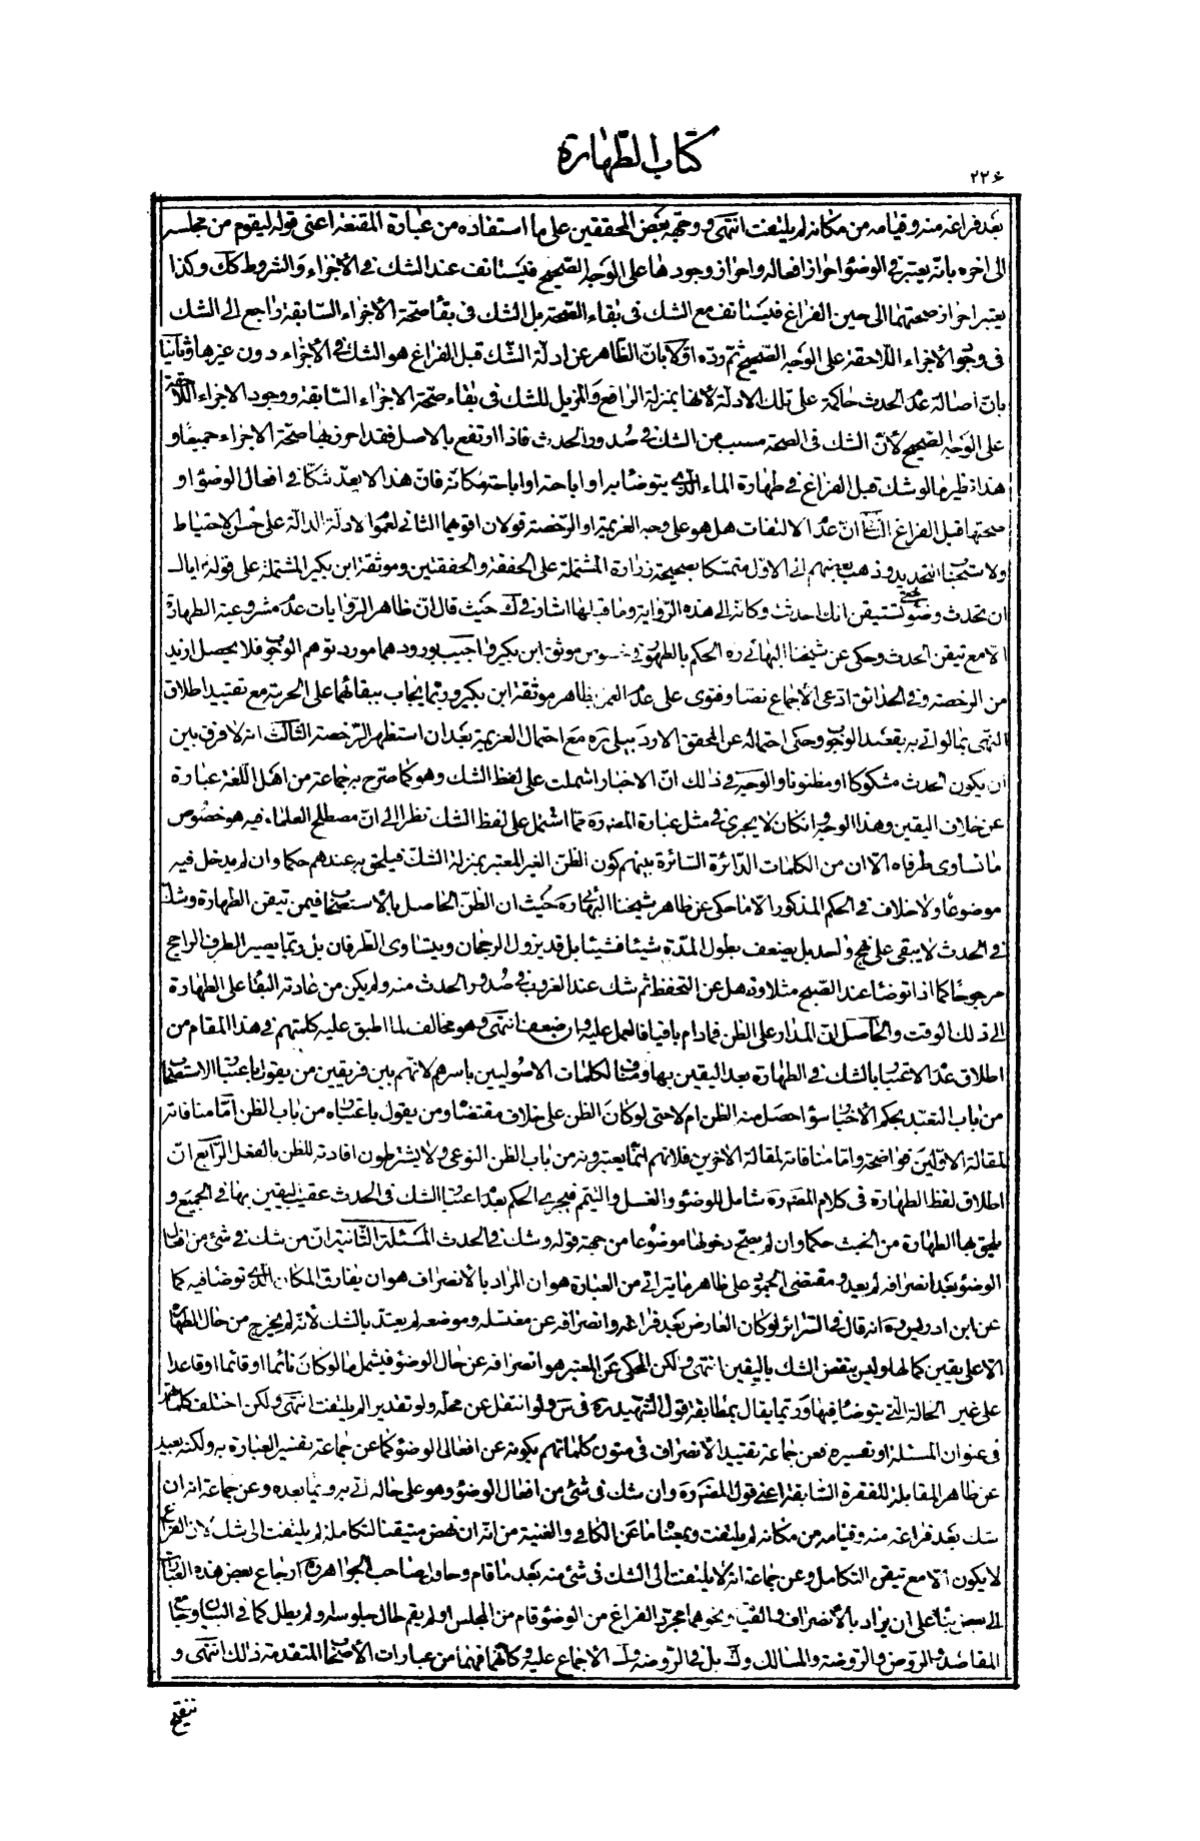 كتاب الطهارة
٢٢٤
بعد فراغه منه وقيامه من مكانه لم يلتفت انتهى ووجهه بعض المحققين على ما استفاده من عبارة المقنعة اعنى قوله ليقوم من مجلسه
الى اخره بانه يعتبر فى الوضوء احراز افعاله واحراز وجودها على الوجه الصحيح فيستانف عند الشك فى الأجزاء والشروط كك وكذا
يعتبر احراز صحتهما الى حين الفراغ فيستانف مع الشك فى بقاء الصحة بل الشك فى بقاء صحة الأجزاء السابقة راجع الى الشك
فى وجود الأجزاء اللاحقة على الوجه الصحيح ثم رده اولا بان الظاهر عن ادلة الشك قبل الفراغ هو الشك فى الأجزاء دون غيرها وثانيا
بان اصالة عدم الحدث حاكمة على تلك الادلة لأنها بمنزلة الرافع والمزيل للشك فى بقاء صحة الاجزاء السابقة ووجود الاجزاء اللاحقة
على الوجه الصحيح لأن الشك فى الصحة مسبب من الشك فى صدور الحدث فاذا ارتفع بالاصل فقد احرز بها صحة الاجزاء جميعا و
هذا نظير ما لو شك قبل الفراغ فى طهارة الماء الذى يتوضأ به او اباحته او اباحة مكانه فان هذا لا يعد شكا فى افعال الوضوء او
صحتها قبل الفراغ الثانى ان عدم الالتفات هل هو على وجه العزيمة او الرخصة قولان اقويهما الثانى لعموم الادلة الدالة على حسن الاحتياط
ولاستحباب التجديد وذهب بعضهم الى الاول متمسكا بصحيحة زرارة المشتملة على الخفقة والخفقتين وموثقة ابن بكير المشتملة على قوله اياك
ان تحدث وضوء حتى تستيقن انك احدثت وكانه الى هذه الرواية وما قبلها اشار فى ك حيث قال ان ظاهر الروايات عدم مشروعية الطهارة
الا مع تيقن الحدث وحكى عن شيخنا البهائى ره الحكم بالطهور فى موثق ابن بكير واجيب بورودهما مورد توهم الوجوب فلا يحصل ازيد
من الرخصة وفى الحدائق ادعى الأجماع نصا وفتوى على عدم ظاهر موثقة ابن بكير وربما يجاب ببقائهما على الحرمة مع تقييد اطلاق
النهى بما لو اتى به بقصد الوجوب وحكى احتماله عن المحقق الاردبيلى ره مع احتمال العزيمة بعد ان استظهر الرخصة الثالث انه لا فرق بين
ان يكون الحدث مشكوكا او مظنونا والوجه فى ذلك ان الاخبار اشتملت على لفظ الشك وهو كما صرح به جماعة من اهل اللغة عبارة
عن خلاف اليقين وهذا الوجه وان كان لا يجرى فى مثل عبارة المصنف ره مما اشتمل على لفظ الشك نظرا الى ان مصطلح العلماء فيه هو خصوص
ما تساوى طرفاه الا ان من الكلمات الدائرة السائرة بينهم كون الظن الغير المعتبر بمنزلة الشك فيلحق به عندهم حكما وان لم يدخل فيه
موضوعا ولا خلاف فى الحكم المذكور الا ما حكى عن ظاهر شيخنا البهائى ره حيث ان الظن الحاصل بالأستصحاب فيمن تيقن الطهارة وشك
فى الحدث لا يبقى على نهج واحد بل يضعف بطول المدة شيئا فشيئا بل قد يزول الرجحان ويتساوى الطرفان بل ربما يصير الطرف الراجح
مرجوحا كما اذا توضأ عند الصبح مثلا وذهل عن التحفظ ثم شك عند الغروب فى صدور الحدث منه ولم يكن من عادته البقاء على الطهارة
الى ذلك الوقت والحاصل ان المدار على الظن فما دام باقيا فالعمل عليه وان ضعف انتهى وهو مخالف لما اطبق عليه كلمتهم فى هذا المقام من
اطلاق عدم الاعتبار بالشك فى الطهارة بعد اليقين بها ومناف لكلمات الاصوليين باسرهم لانهم بين فريقين من يقول باعتبار الاستصحاب
من باب التعبد بحكم الأخبار سواء حصل منه الظن ام لا حتى لو كان الظن على خلاف مقتضاه ومن يقول باعتباره من باب الظن اما منافاته
لمقالة الاولين فواضحة واما منافاته لمقالة الاخرين فلانهم انما يعتبرونه من باب الظن النوعى ولا يشترطون افادته للظن بالفعل الرابع ان
اطلاق لفظ الطهارة فى كلام المصنف ره شامل للوضوء والغسل والتيمم فيجرى الحكم بعدم اعتبار الشك فى الحدث عقيب اليقين بها فى الجميع و
يلحق بها الطهارة من الخبث حكما وان لم يصح دخولها موضوعا من جهة قوله وشك فى الحدث المسئلة الثانية ان من شك فى شئ من افعال
الوضوء بعد انصرافه لم يعد ومقتضى الجمود على ظاهر ما يترائى من العبارة هو ان المراد بالأنصراف هو ان يفارق المكان الذى توضأ فيه كما
عن ابن ادريس ره انه قال فى السرائر لو كان العارض بعد فراغه وانصرافه عن مغتسله وموضعه لم يعتد بالشك لأنه لم يخرج من حال الطهارة
الا على يقين كمالها وليس ينقض الشك باليقين انتهى ولكن المحكى عن المعتبر هو انصرافه عن حال الوضوء فيشمل ما لو كان نائما او قائما او قاعدا
على غير الحالة التى يتوضأ فيها وربما يقال بمطابقة قول الشهيد ره فى س ولو انتقل عن محله ولو تقديرا لم يلتفت انتهى ولكن اختلف كلماتهم
فى عنوان المسئلة او تفسيره فعن جماعة تقييد الأنصراف فى متون كلماتهم بكونه عن افعال الوضوء كما عن جماعة تفسير العبارة به ولكنه بعيد
عن ظاهر المقابلة للفقرة السابقة اعنى قول المصنف ره وان شك فى شئ من افعال الوضوء وهو على حاله اتى به وبما بعده وعن جماعة انه ان
شك بعد فراغه منه وقيامه من مكانه لم يلتفت وبمعناها ما عن الكافى والغنية من انه ان نهض متيقنا لتكامله لم يلتفت الى شك لان الفراغ
لا يكون الا مع تيقن التكامل وعن جماعة انه لا يلتفت الى الشك فى شئ منه بعد ما قام وحاول صاحب الجواهر ره ارجاع بعض هذه العبارات
الى بعض بناء على ان يراد بالأنصراف والقيام ونحوهما مجرد الفراغ من الوضوء قام من المجلس او لم يقم طال جلوسه او لم يطل كما فى البيان وجامع
المقاصد والروض والروضة والمسالك وك بل فى الروضة وك الأجماع عليه وكانهما فهما من عبارات الأصحاب المتقدمة ذلك انتهى و
تنقيح